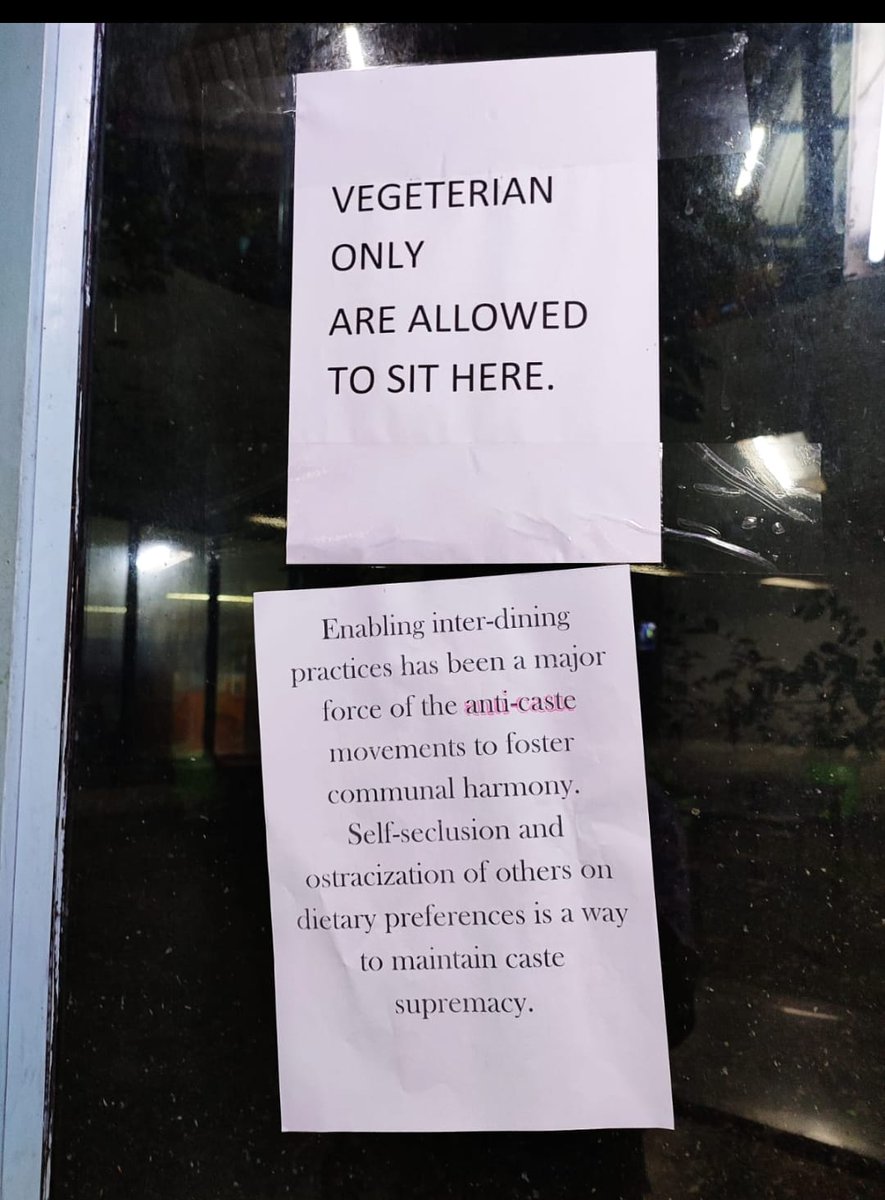 VEGETERIAN
ONLY
ARE ALLOWED
TO SIT HERE.
Enabling inter-dining
practices has been a major
force of the anti-caste
movements to foster
communal harmony.
Self-seclusion and
ostracization of others on
dietary preferences is a way
to maintain caste
supremacy.